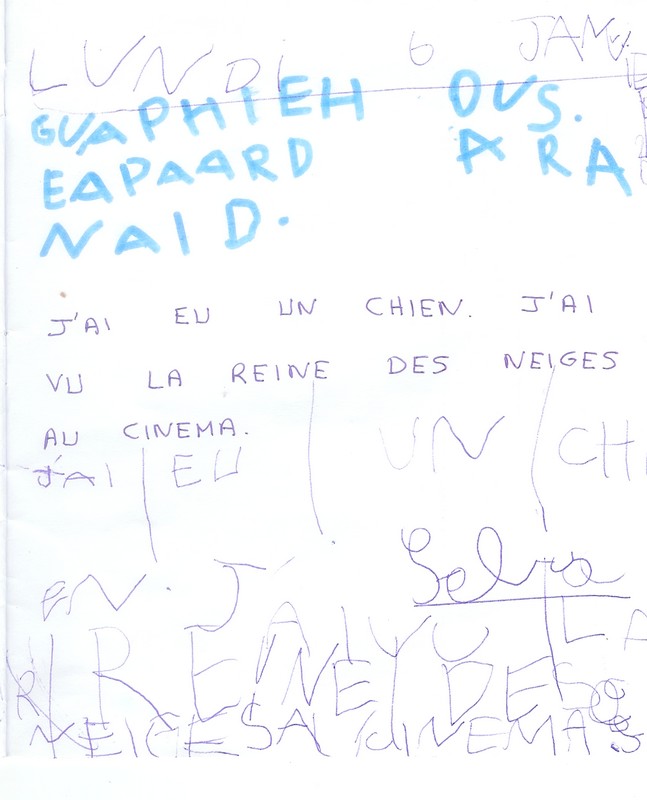 LUNDI 6 JANV
GUAPHIEH OUS.
EAPAARD A RA
NAID.
J'AI EU UN CHIEN. J'AI
VU LA REINE DES NEIGES
AU CINEMA.
J'AI EU UN CHI
EN. J'
Selva
AI VU LA
REINE DES
NEIGES AU CINEMA